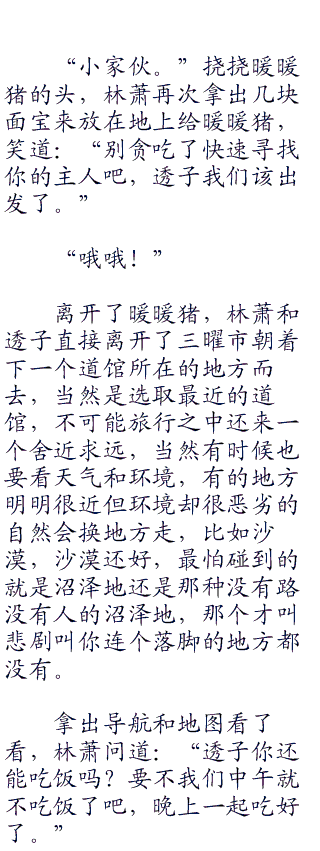 “小家伙。”挠挠暖暖
猪的头，林萧再次拿出几块
面宝来放在地上给暖暖猪，
笑道：“别贪吃了快速寻找
你的主人吧，透子我们该出
发了。”
“哦哦！”
离开了暖暖猪，林萧和
透子直接离开了三曜市朝着
下一个道馆所在的地方而
去，当然是选取最近的道
馆，不可能旅行之中还来一
个舍近求远，当然有时候也
要看天气和环境，有的地方
明明很近但环境却很恶劣的
自然会换地方走，比如沙
漠，沙漠还好，最怕碰到的
就是沼泽地还是那种没有路
没有人的沼泽地，那个才叫
悲剧叫你连个落脚的地方都
没有。
拿出导航和地图看了
看，林萧问道：“透子你还
能吃饭吗？要不我们中午就
不吃饭了吧，晚上一起吃好
了。”